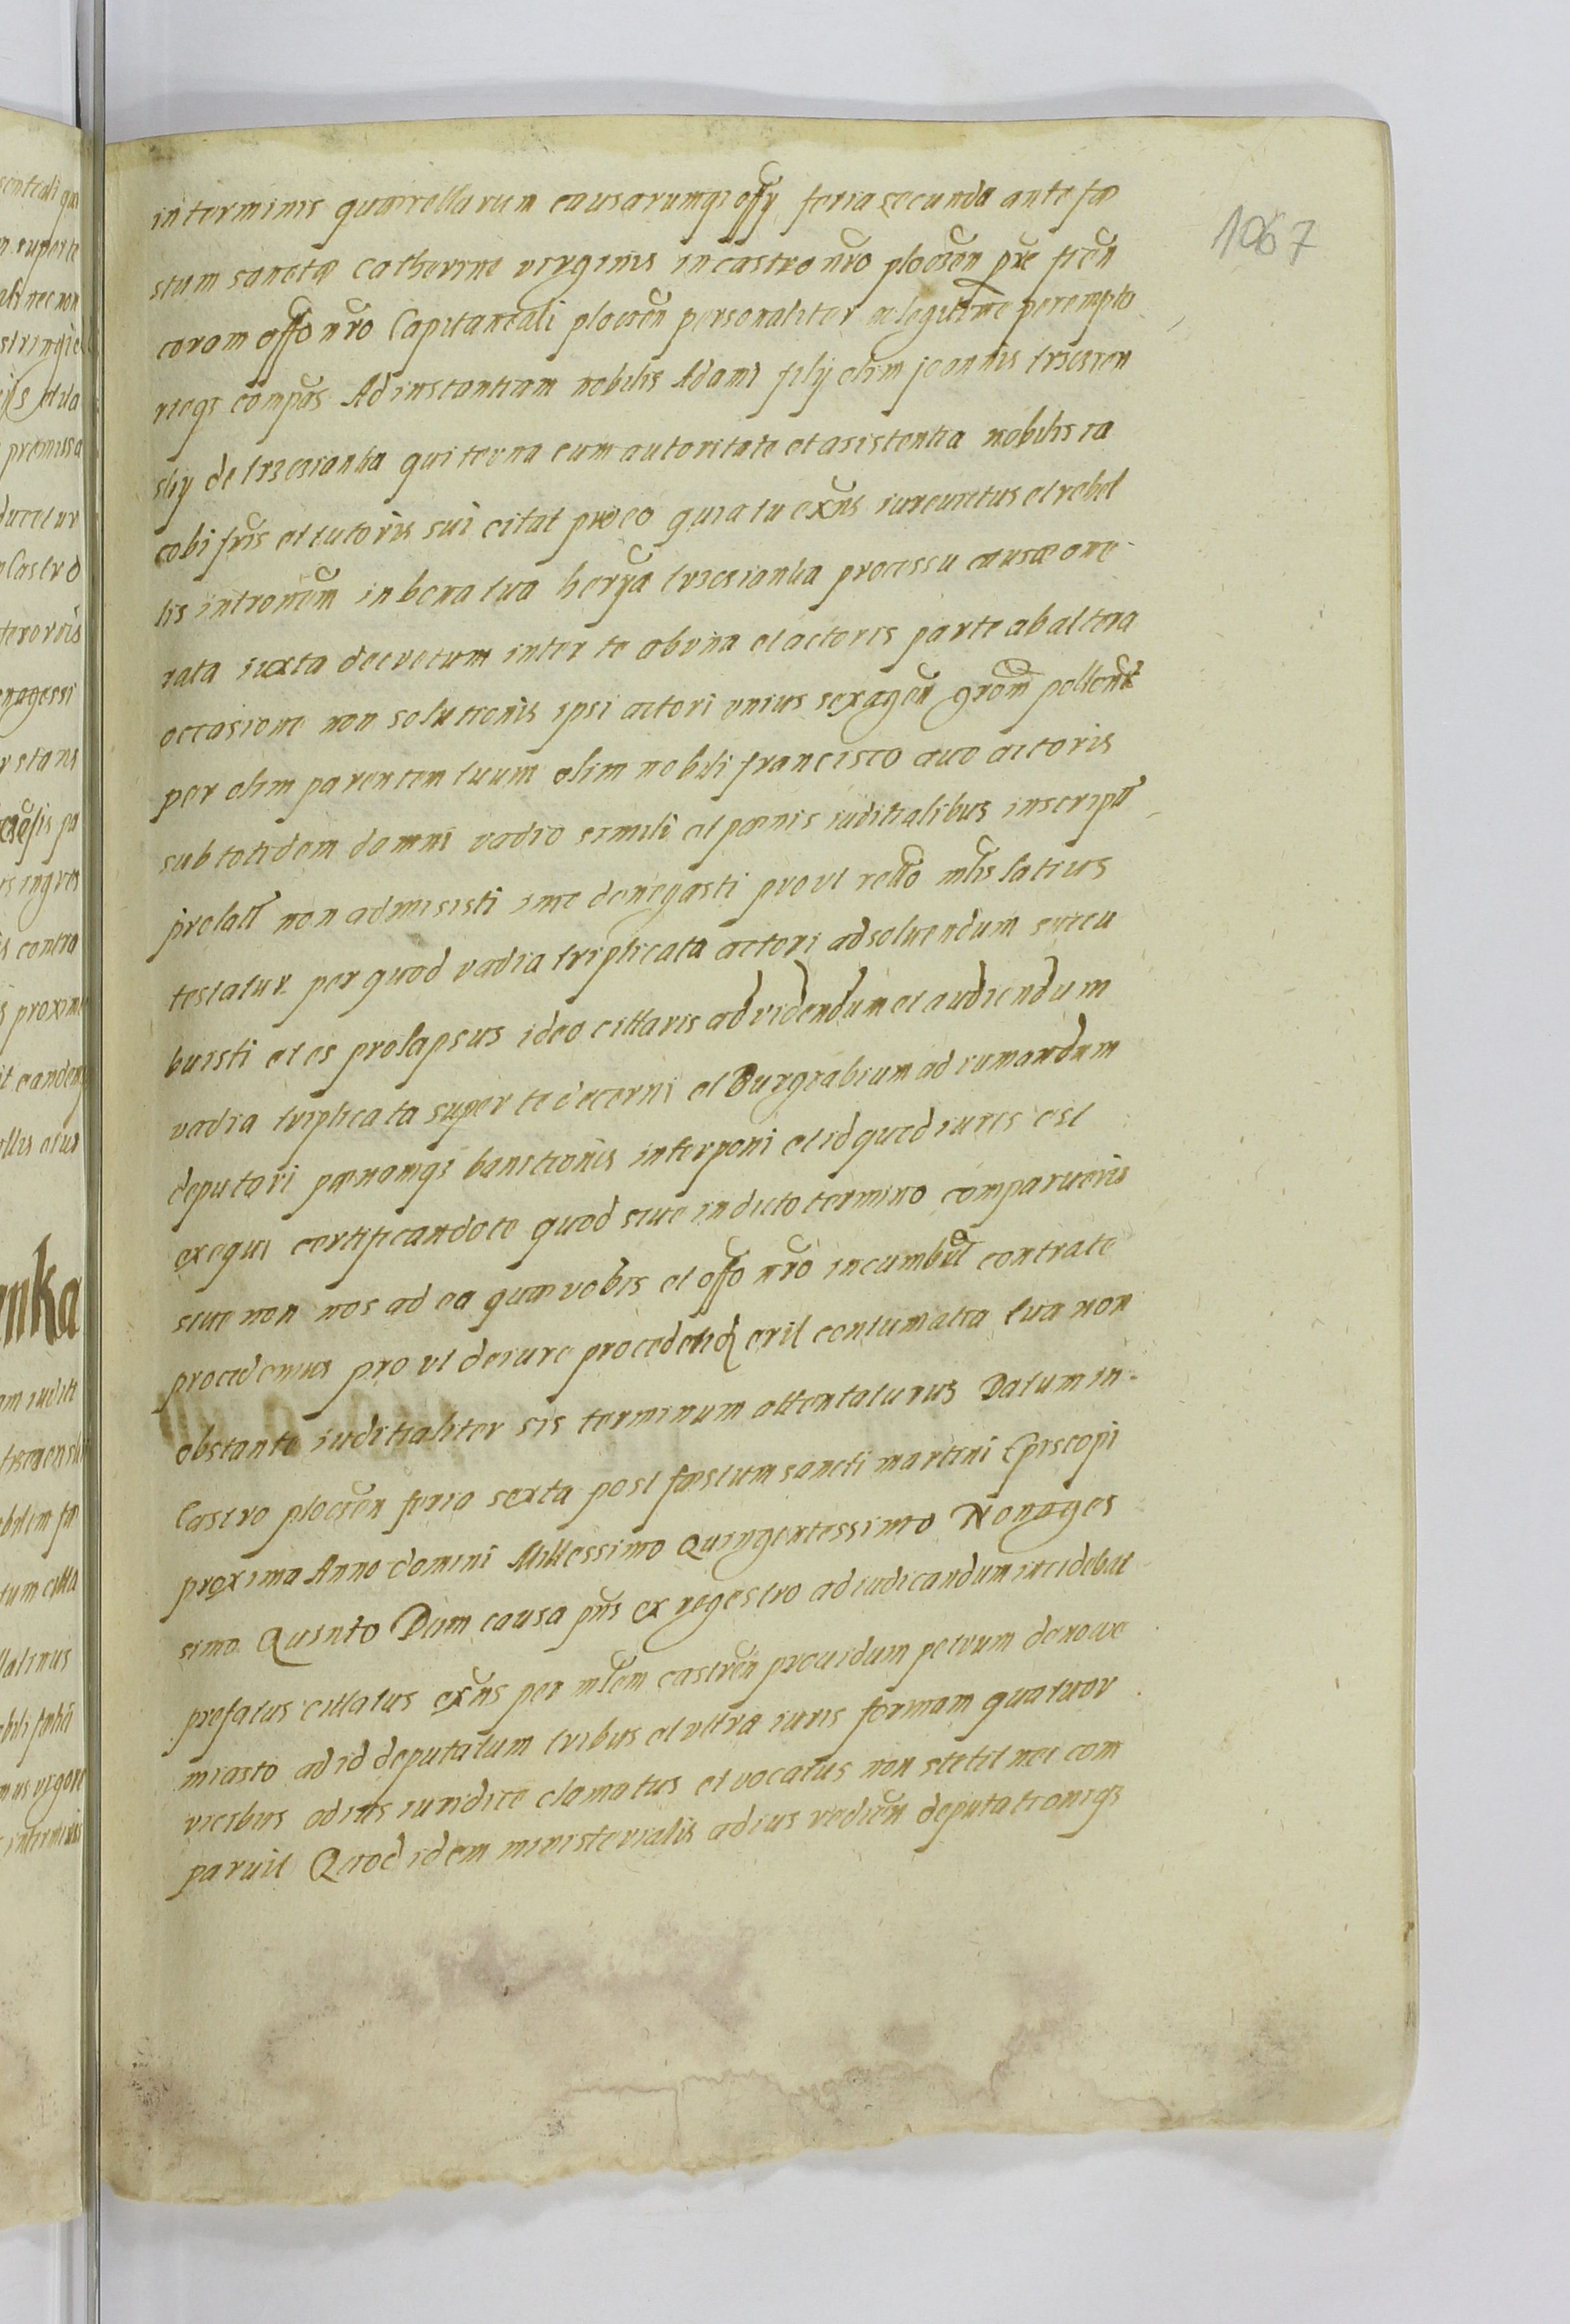 1067
in terminis quærellarum causarumqȝ offy feria secunda ante fæ
stum sanctæ Catherine virginis in castro nro plocen pre fien
coram offo nro Capitaneali plocen personaliter ac legitime perempto
rieqȝ compas Ad instantiam nobilis Adami filij olim Joannis trzcien
skij de trzcianka qui te una cum autoritate et asistentia nobilis ia
cobi fris et tutoris sui citat pro eo quia tu exns iureuictus et rebel
lis intromem in bona tua herya trzcianka processu causæ one
rata iuxta decretum inter te ab una et actoris parte ab altera
occasione non solutionis ipsi actori unius sexagen grom pollent
per olim parentem tuum olim nobili francisco auo actoris
sub totidem damni vadio simili et pænis iuditialibus inscript
prolatt non admisisti imo denegasti prout rello mlis latius
testatur per quod vadia triplicata actori ad soluendum succu
buisti et es prolapsus ideo cittaris ad videndum et audiendum
vadia triplicata super te decerni et Burgrabium ad rumandum
deputari pænamqȝ banitionis interponi et id quod iuris est
exequi certificando te quod siue in dicto termino comparueris
siue non nos ad ea quæ vobis et offo nro incumbut contra te
procedemus pro ut de iure procedendȝ erit contumatia tua non
obstante iuditialiter sis terminum attentaturus Datum in
Castro plocen feria sexta post fæstum sancti martini Episcopi
proxima Anno domini Millessimo Quingentessimo Nonages
simo Quinto Dum causa pns ex regestro ad iudicandum incidebat
prefatus cittatus exns per mlem castren prouidum petrum de nowe
miasto ad id deputatum tribus et ultra iuris formam quatuor
vicibus ad ius iuridice clamatus et vocatus non stetit nei com
paruit Quod idem ministerialis ad ius rediens deputationiqȝ